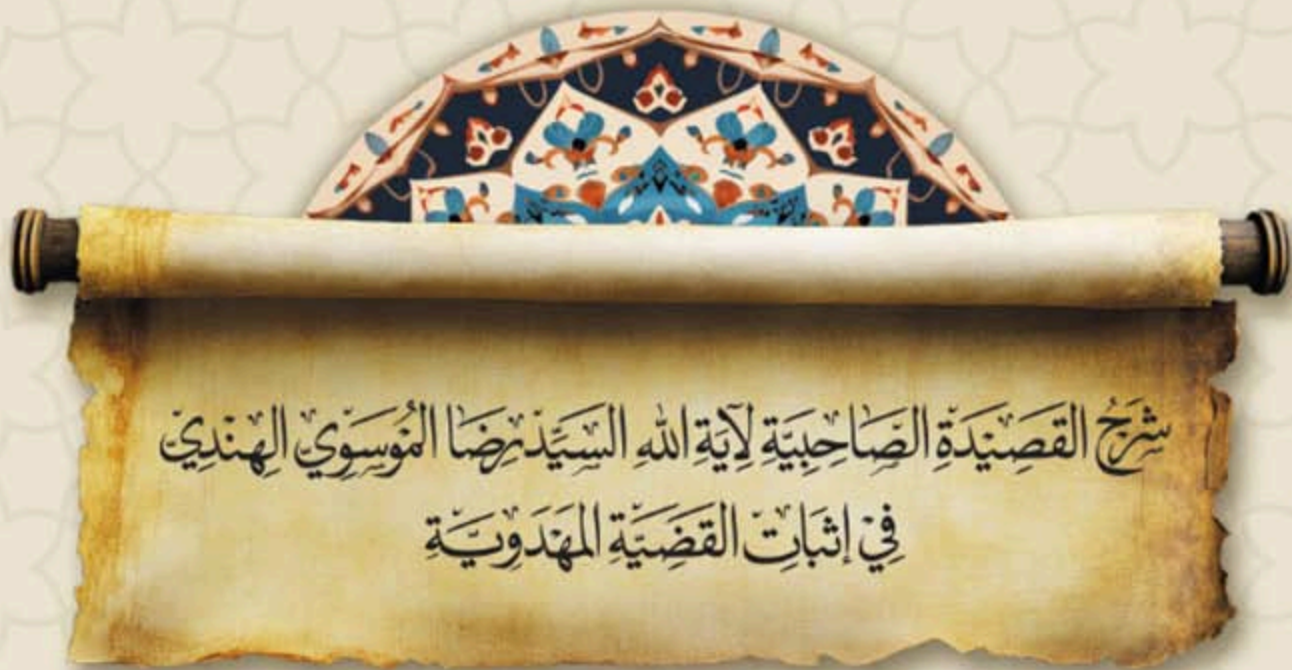 شَرْحُ القَصِيْدَةِ الصَّاحِبِيَّةِ لِآيَةِ اللهِ السَيِّدْ رِضَا المُوْسَوِيّ الهِنْدِيّ
فِيْ إِثْبَاتِ القَضِيَّةِ المَهْدَوِيَّةِ